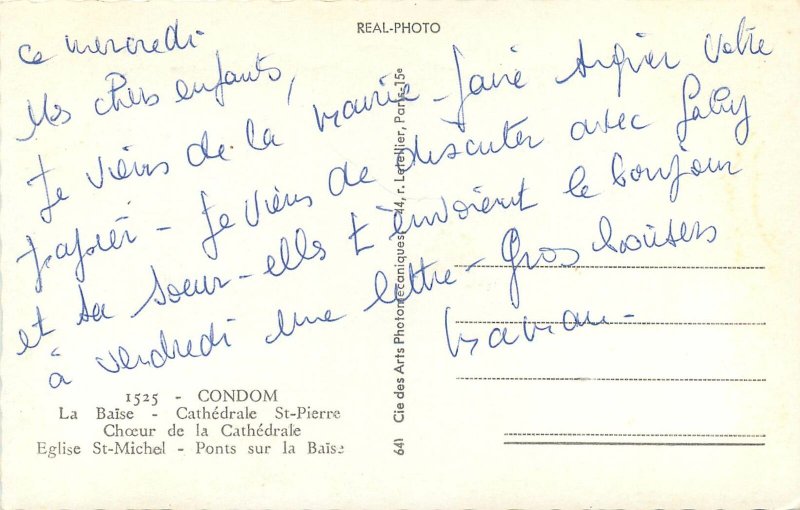 REAL-PHOTO
ce mercredi
Mes chers enfants,
Je viens de la mairie - faire signer votre
papier - Je viens de discuter avec Gaby
et sa soeur - elles t'envoient le bonjour
à vendredi une lettre - Gros baisers
maman -
1525 - CONDOM
La Baïse - Cathédrale St-Pierre
Chœur de la Cathédrale
Eglise St-Michel - Ponts sur la Baïse
641 Cie des Arts Photomécaniques - 44, r. Letellier, Paris-15e